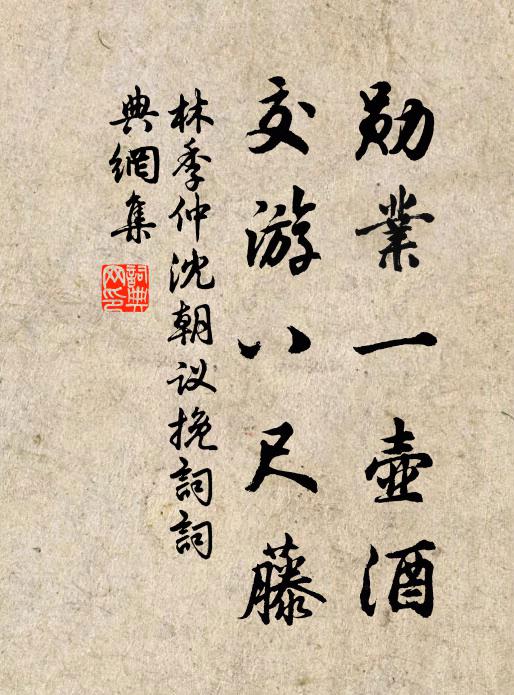 勋業一壺酒
交游八尺藤
林季仲沈朝议挽詞詞
典網集
詞典網印